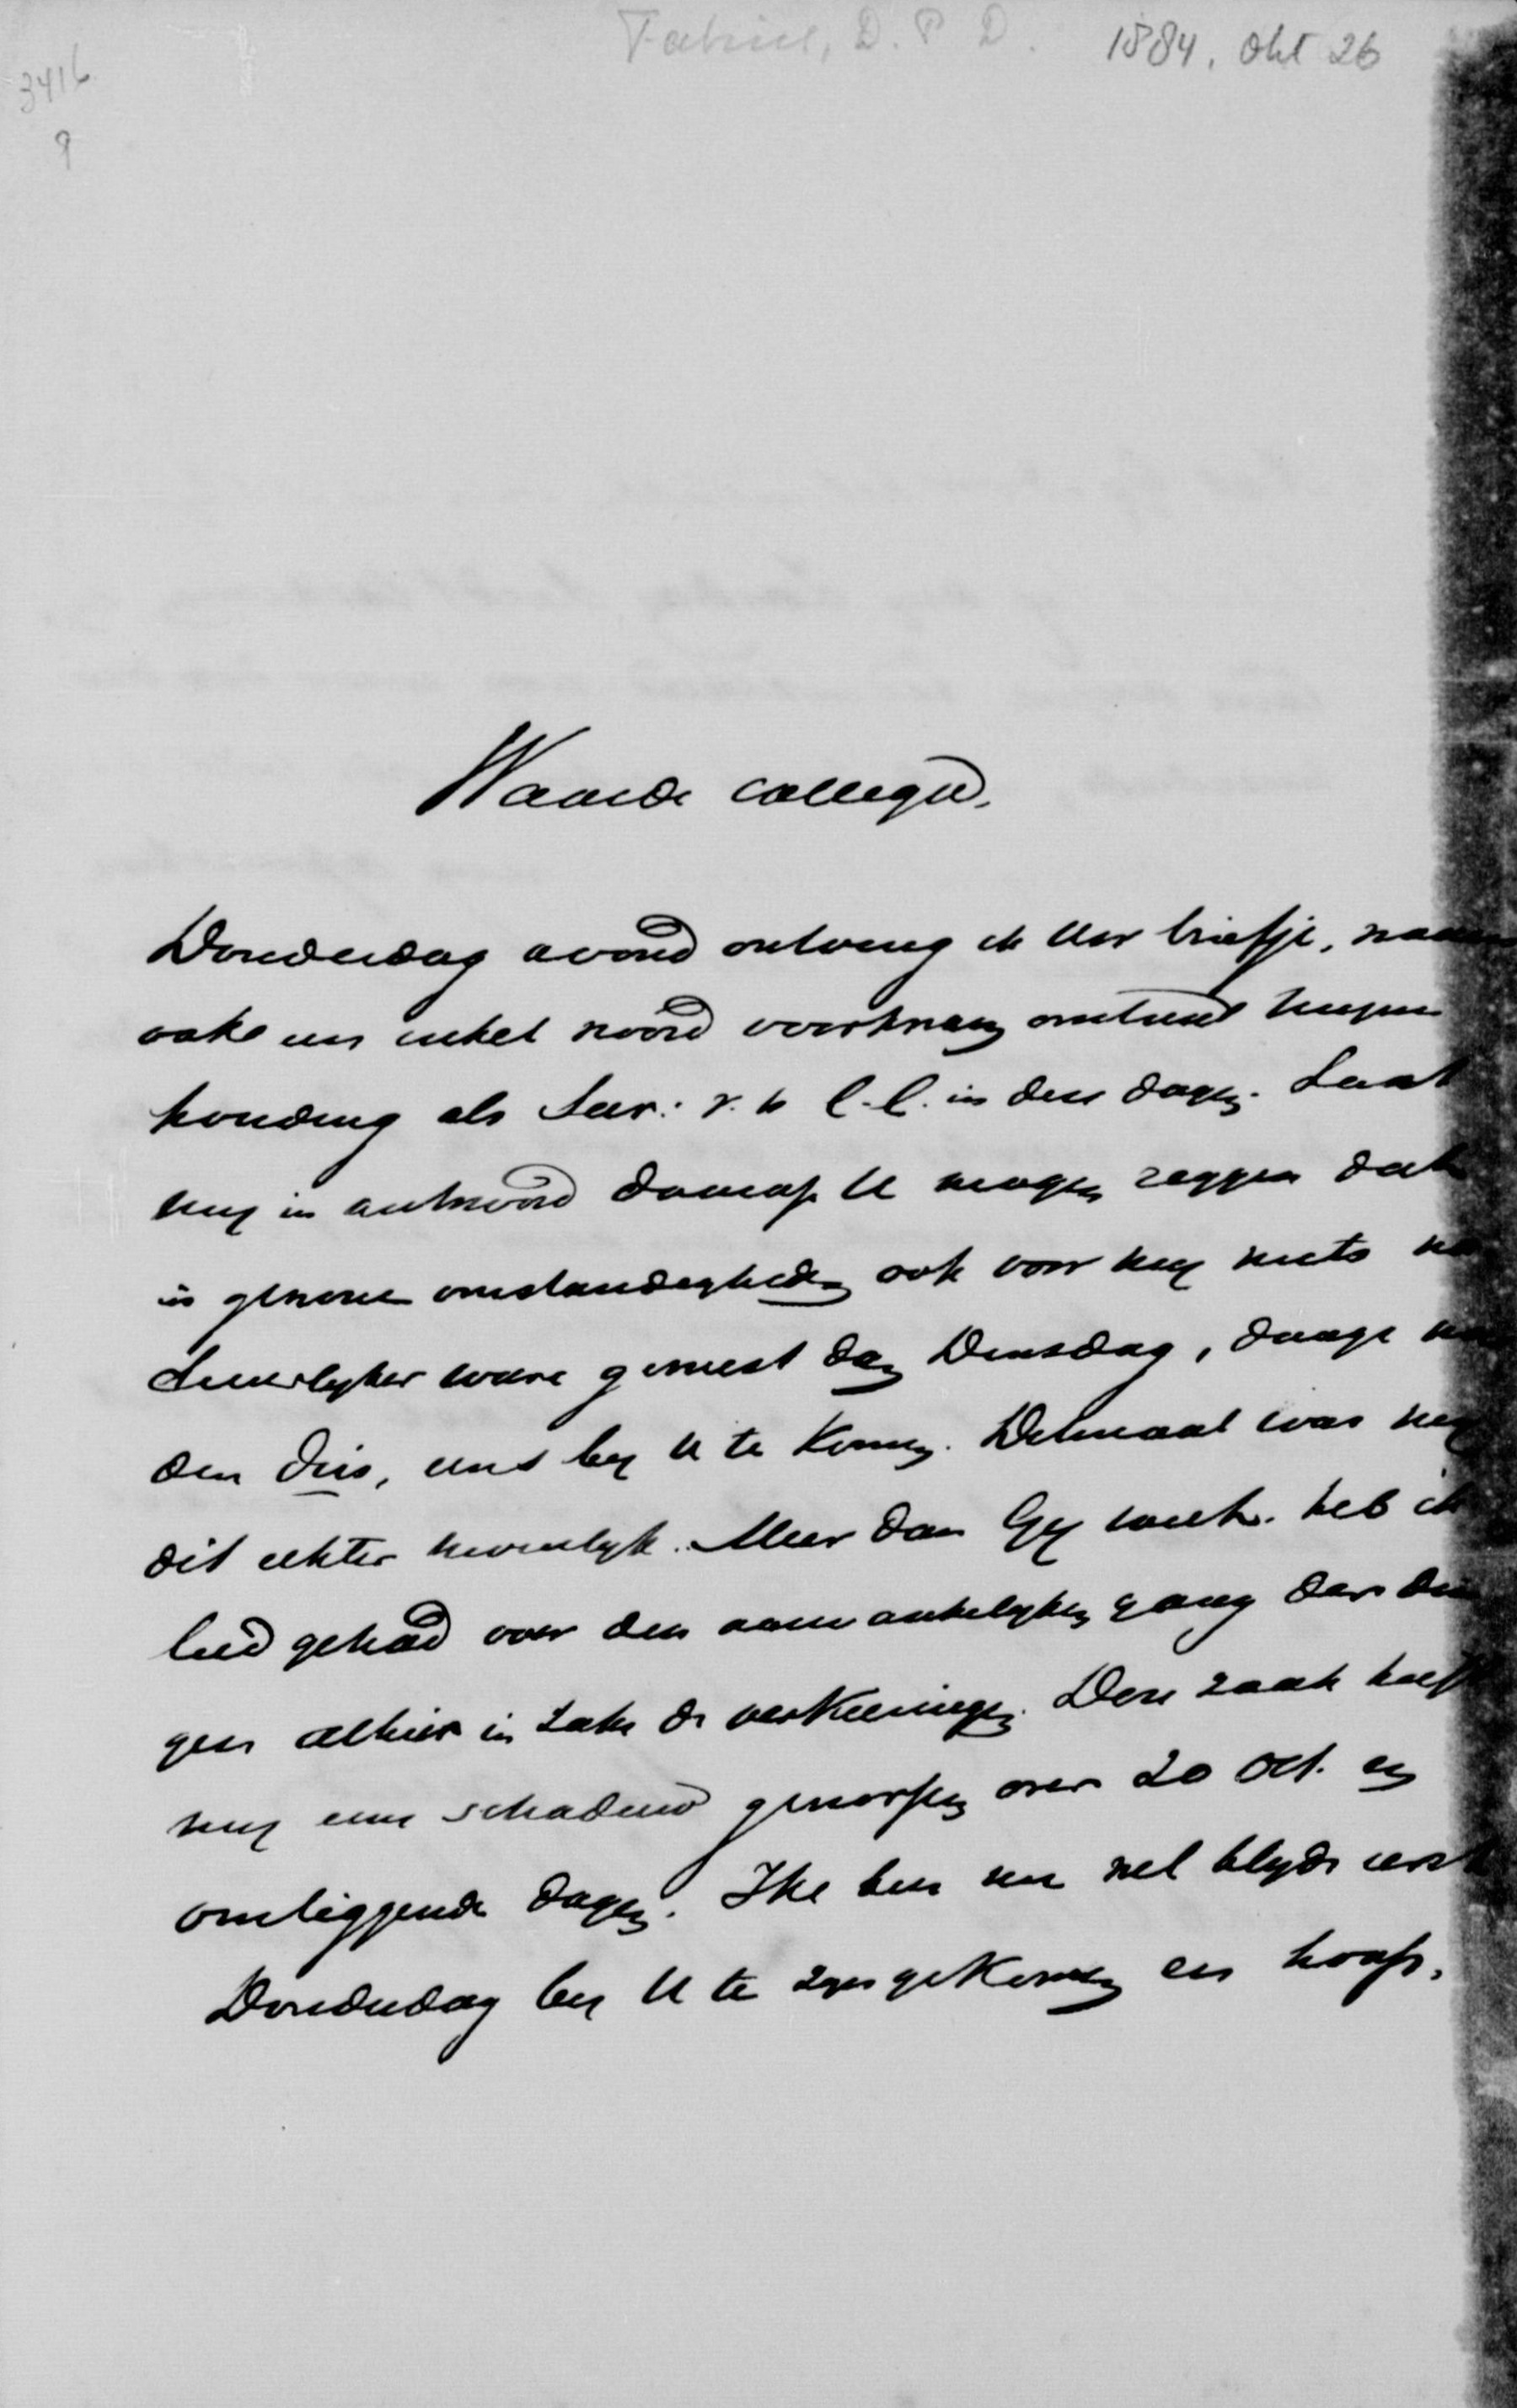 3416
9
Fabius, D. P. D. 1884, Okt 26
Waarde collega,
Donderdag avond ontving ik Uw briefje, waar
een enkel woord voorkwam omtrent mijne
houding als Secr: v. h. C.C. in deze dagen. Laat
mij in antwoord daarop U mogen zeggen dat
in gewone omstandigheden ook voor mij niets na-
tuurlijker ware geweest dan Dinsdag, daags na
den dies, eens bij U te komen. Ditmaal was mij
dit echter Meer dan Gij heb ik
leed gehad over den gang der din
gen alhier in zake de verkiezingen. Deze zaak heeft
mij eene schaduw geworpen over 20 Oct. en
omliggende dagen. Ik ben nu wel blijde eerst
Donderdag bij U te zijn gekomen en hoop,